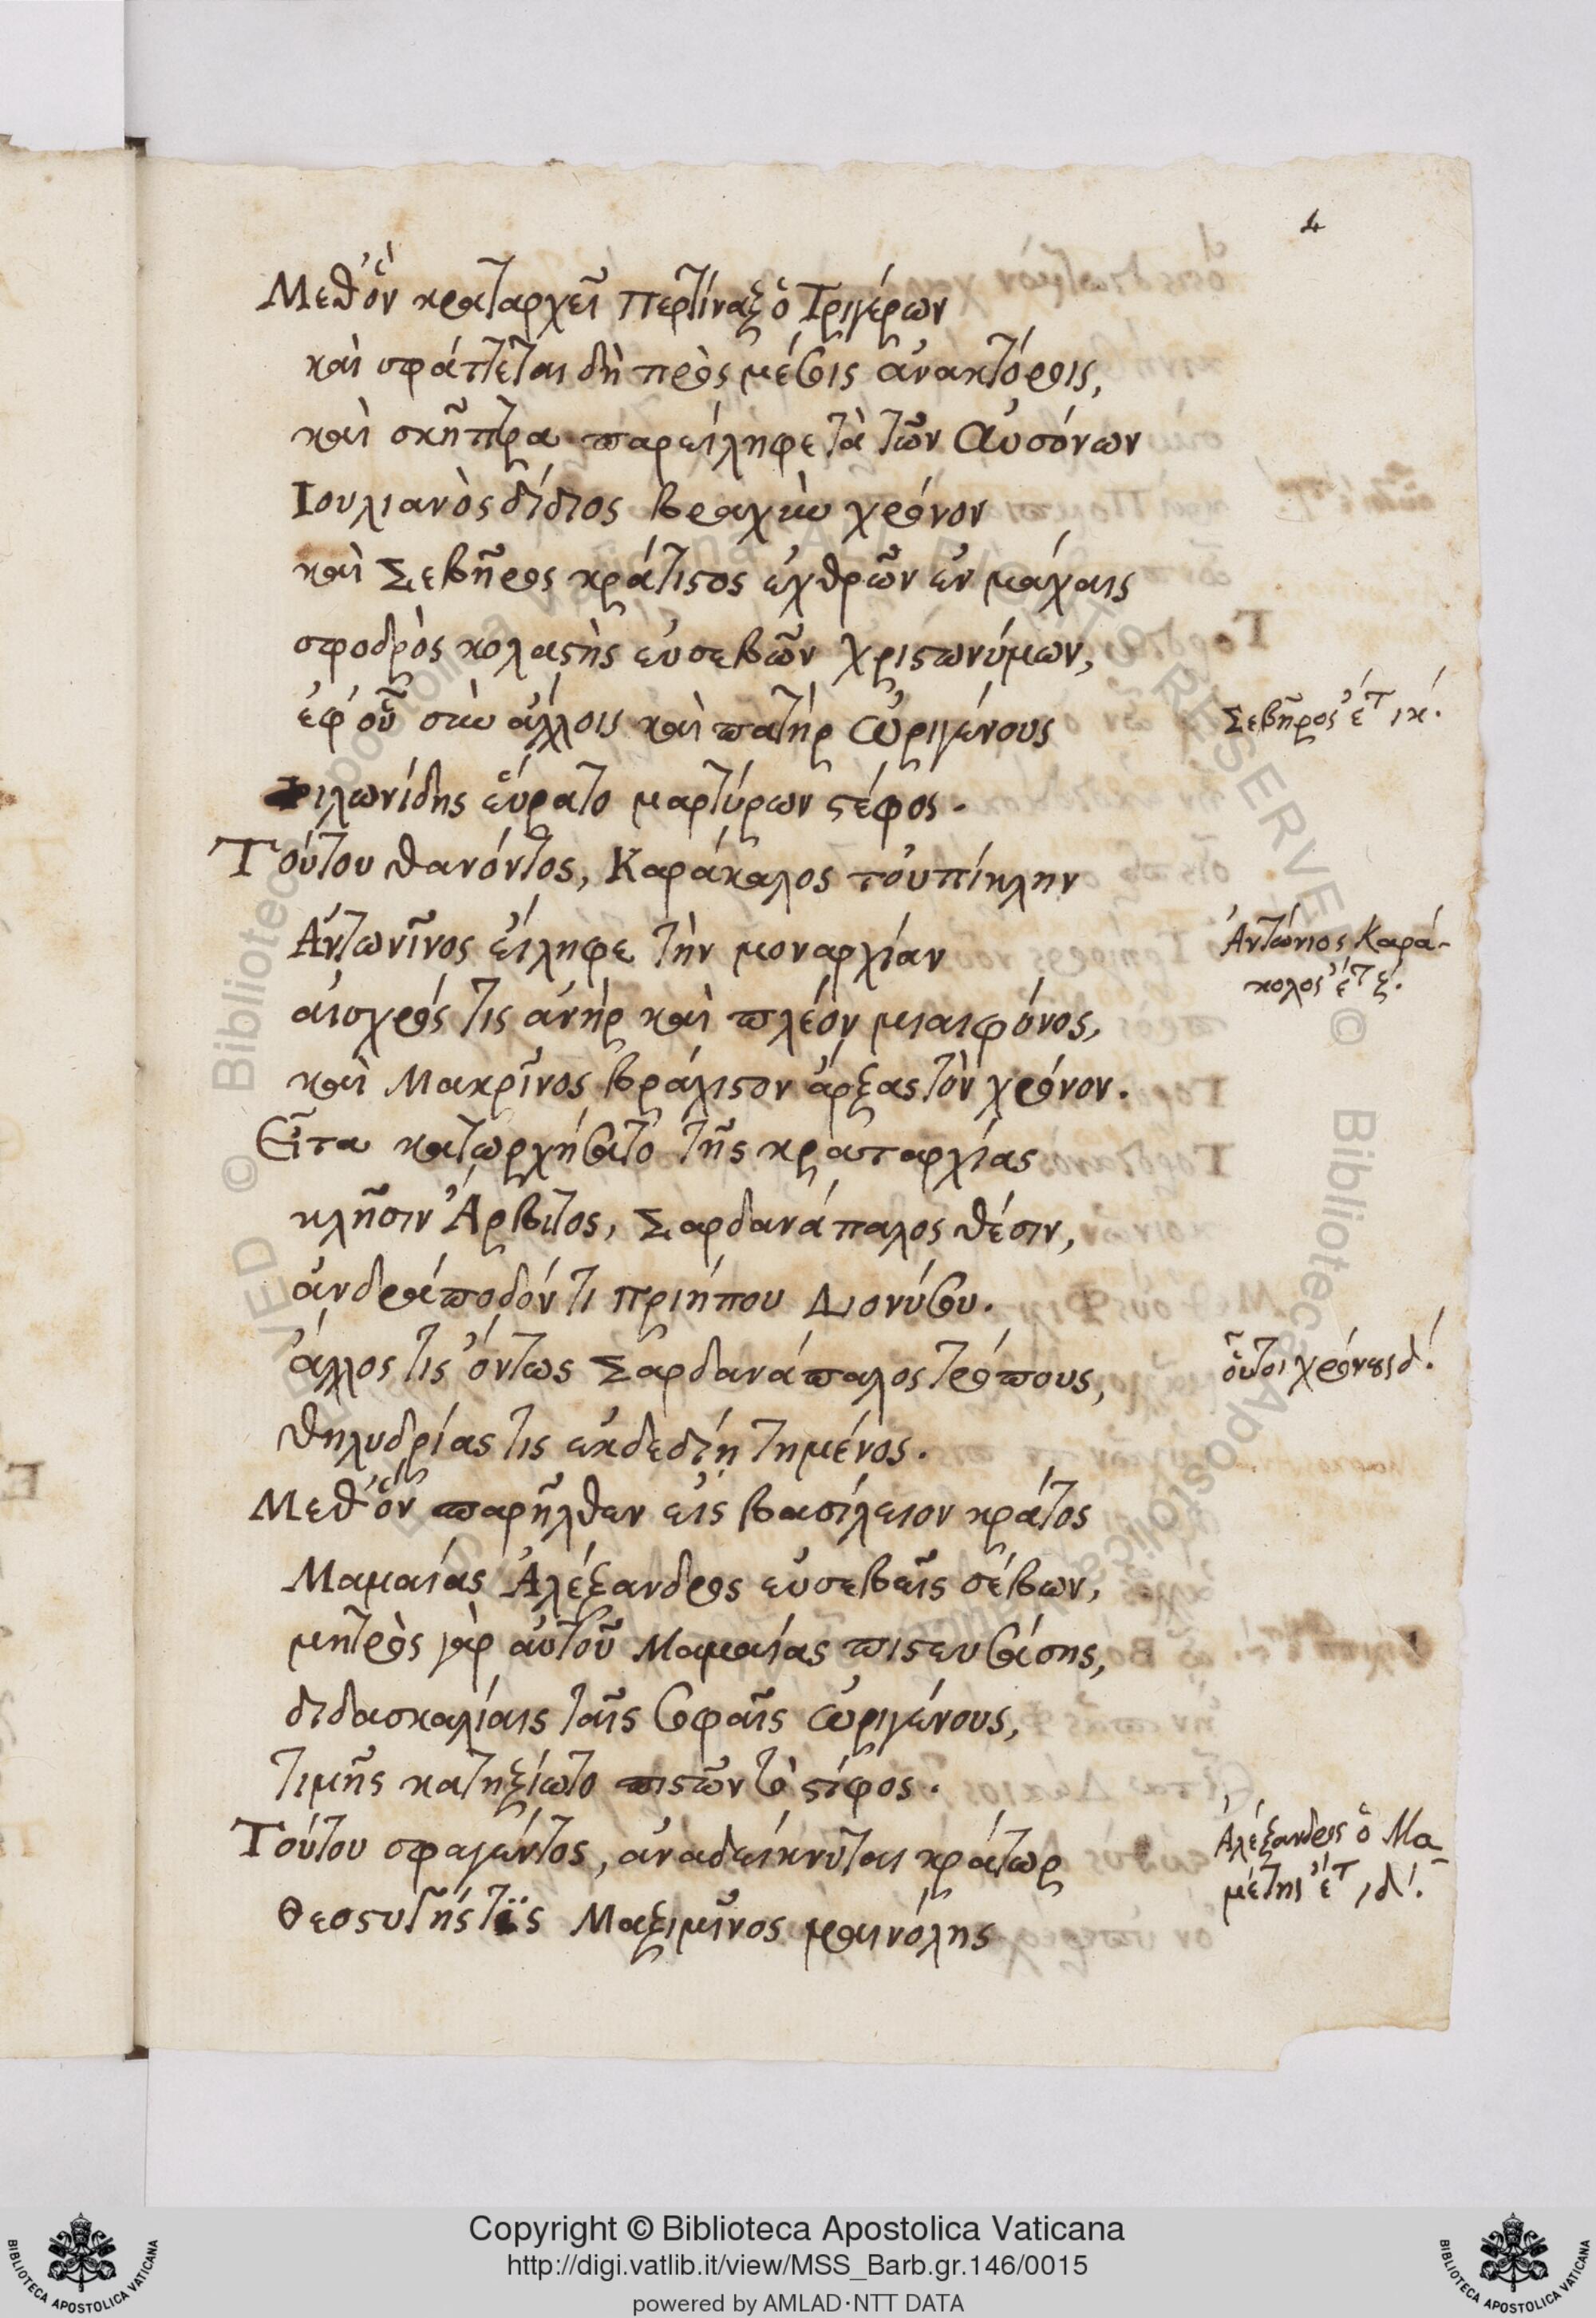 4
Μεθ' ὃν κραταρχεῖ Περτίναξ ὁ Τριγέρων
καὶ σφάττεται δὴ πρὸς μέσοις ἀνακτόροις,
καὶ σκῆπτρα παρείληφε τὰ τῶν Αὐσόνων
Ιουλιανὸς δίδιος βραχὺν χρόνον
καὶ Σεβῆρος κράτιστος ἐχθρῶν ἐν μάχαις
σφοδρὸς κολαστὴς εὐσεβῶν χριστωνύμων,
ἐφ' οὗ σὺν ἄλλοις καὶ πατὴρ Ὠριγένους
Σεβῆρος ἔτ ιη΄.
φιλωνίδης εὕρατο μαρτύρων στέφος.
Τούτου θανόντος, Καράκαλος τοὐπίκλην
Ἀντωνῖνος εἴληφε τὴν μοναρχίαν
Ἀντώνιος Καρά-
κολος ἔτ ξ΄.
αἰσχρός τις ἀνὴρ καὶ πλέον μιαιφόνος,
καὶ Μακρῖνος βράχιστον ἄρξας τὸν χρόνον.
Εἶτα κατωρχήσατο τῆς κραταρχίας
κλῆσιν Ἄρβιτος, Σαρδανάπαλος θέσιν,
ἀνδράποδόν τι πριήπου Διονύσου.
ἄλλος τις ὄντως Σαρδανάπαλος τρόπους,
οὗτοι χρόνους δ΄.
θηλυδρίας τις ἐκδεδιῃτημένος.
Μεθ' ὃν παρῆλθεν εἰς βασίλειον κράτος
Μαμαίας Ἀλέξανδρος εὐσεβεῖς σέβων,
μητρὸς γὰρ αὐτοῦ Μαμαίας πιστευσάσης,
διδασκαλίαις ταῖς σοφαῖς Ὠριγένους,
τιμῆς κατηξίωτο πιστῶν τὸ στίφος.
Τούτου σφαγέντος, ἀναδείκνυται κράτωρ
Ἀλέξανδρος ὁ Μα-
μέτης ἔτ ιδ΄.
Θεοστυγής τις Μαξιμῖνος μαινόλης
Copyright © Biblioteca Apostolica Vaticana
http://digi.vatlib.it/view/MSS_Barb.gr.146/0015
powered by AMLAD·NTT DATA
BIBLIOTECA APOSTOLICA VATICANA
BIBLIOTECA APOSTOLICA VATICANA